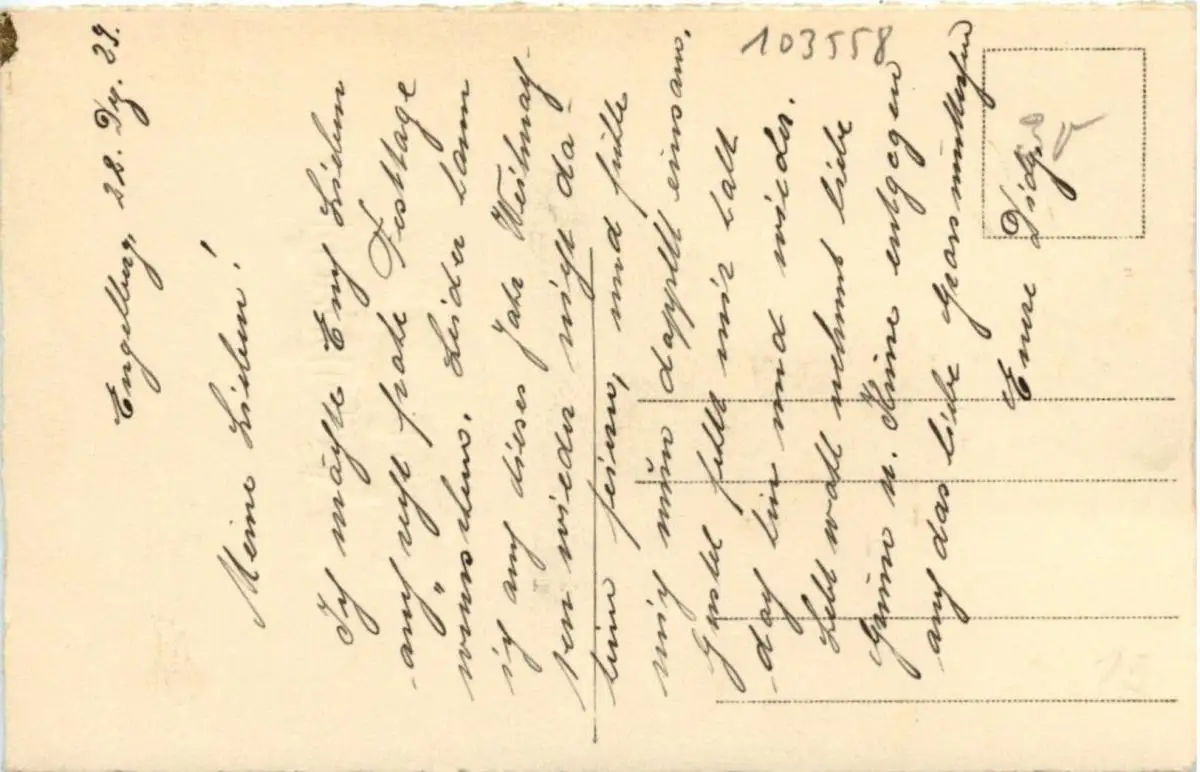 103558
Engelberg, 22. Dz. 39.
Meine Lieben!
Ich möchte Euch Lieben
auch recht frohe Festtage
wünschen. Leider kann
ich auch dieses Jahr Weihnach-
ten wieder nicht da-
heim feiern, und fühle
mich nun doppelt einsam.
Gustel fehlt mir halt
doch hin und wieder.
Lebt wohl nehmt liebe
Grüsse u. Küsse entgegen
auch das liebe Grossmütterchen
Eure